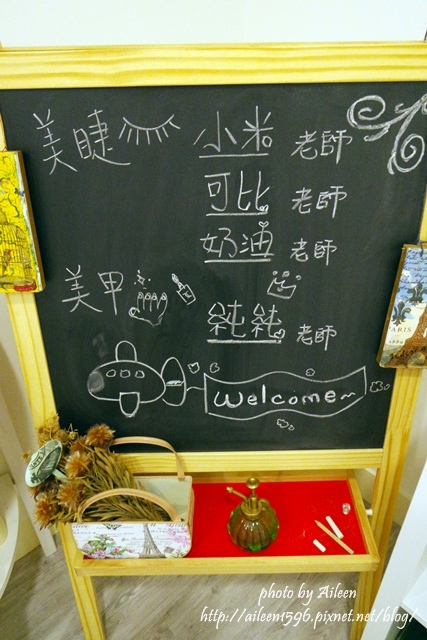 美睫 小米 老師
可比 老師
奶油 老師
美甲
純純 老師
welcome~
PARIS
photo by Aileen
http://aileen1596.pixnet.net/blog/